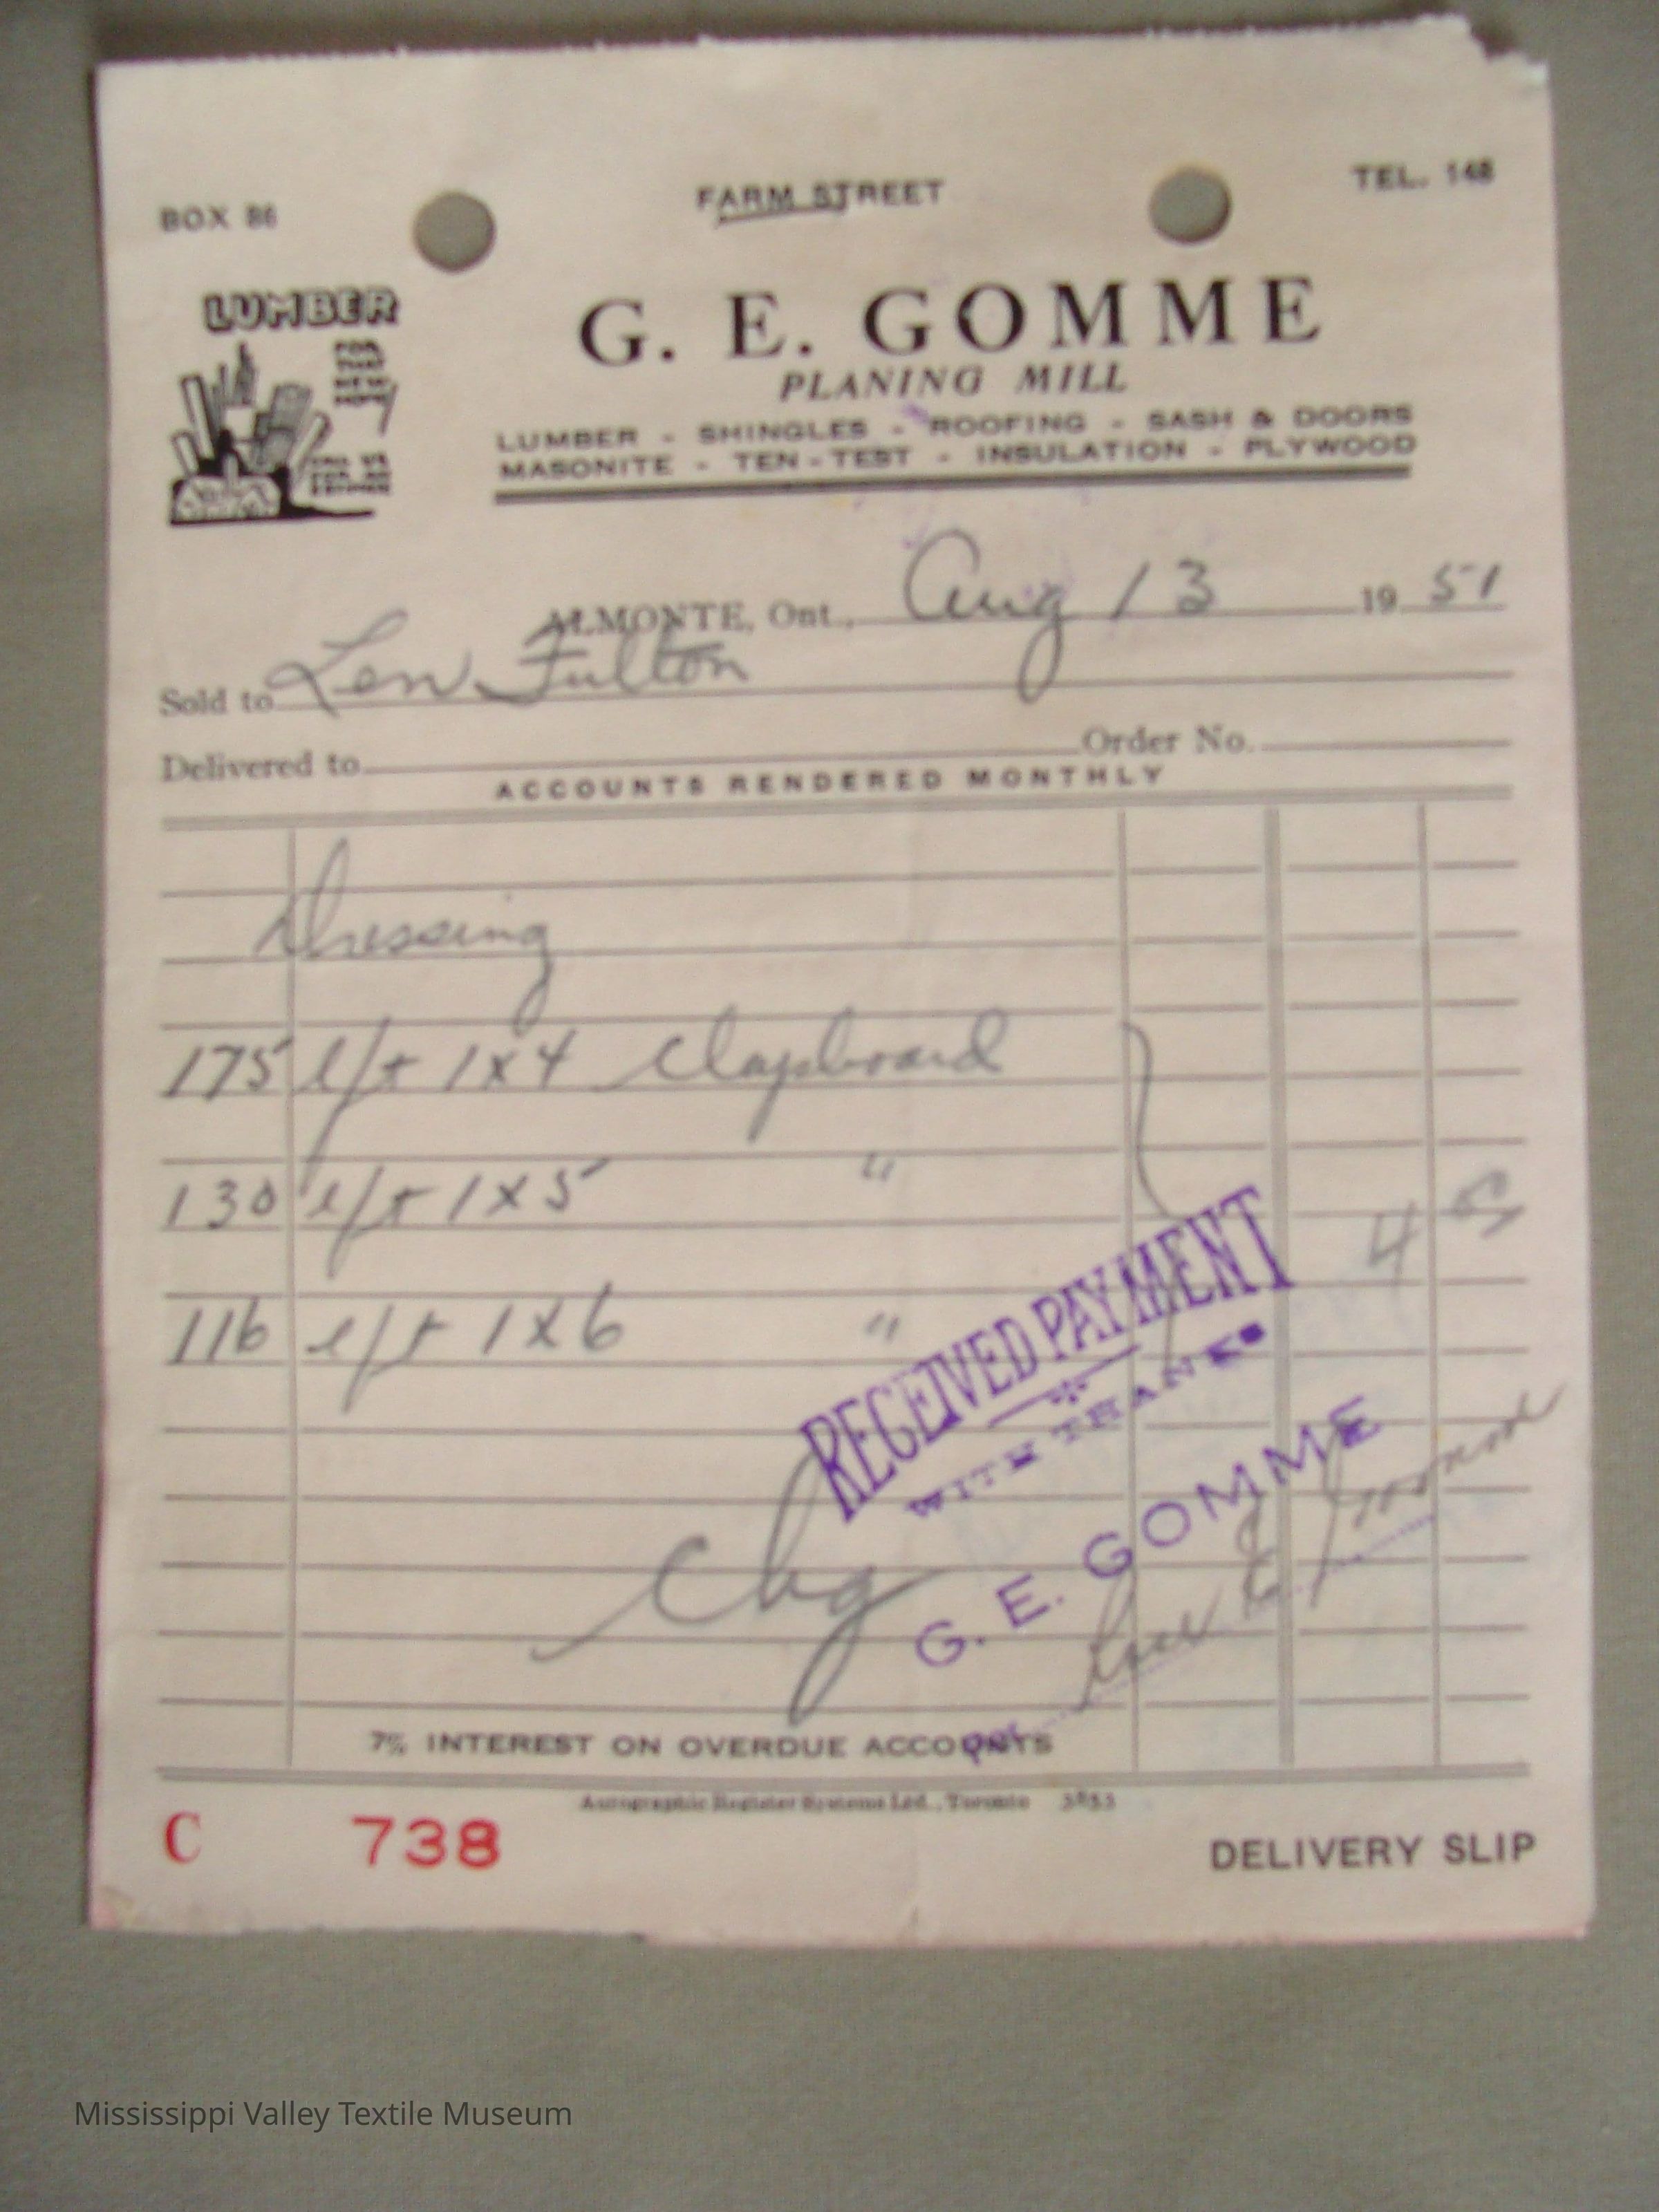 BOX 86
FARM STREET
TEL. 148
LUMBER
FOR
THAT
NEW
HOME
G. E. GOMME
PLANING MILL
LUMBER - SHINGLES - ROOFING - SASH & DOORS
MASONITE - TEN-TEST - INSULATION - PLYWOOD
ALMONTE, Ont., Aug 13 19 51
Sold to Len Fulton
Delivered to Order No.
ACCOUNTS RENDERED MONTHLY
Dressing
175 l/ft 1x4 Clapboard
130 l/ft 1x5 "
4
116 l/ft 1x6 "
RECEIVED PAYMENT
WITH THANKS
G. E. GOMME
Chg
per
7% INTEREST ON OVERDUE ACCOUNTS
Autographic Register Systems Ltd., Toronto
C 738
DELIVERY SLIP
Mississippi Valley Textile Museum